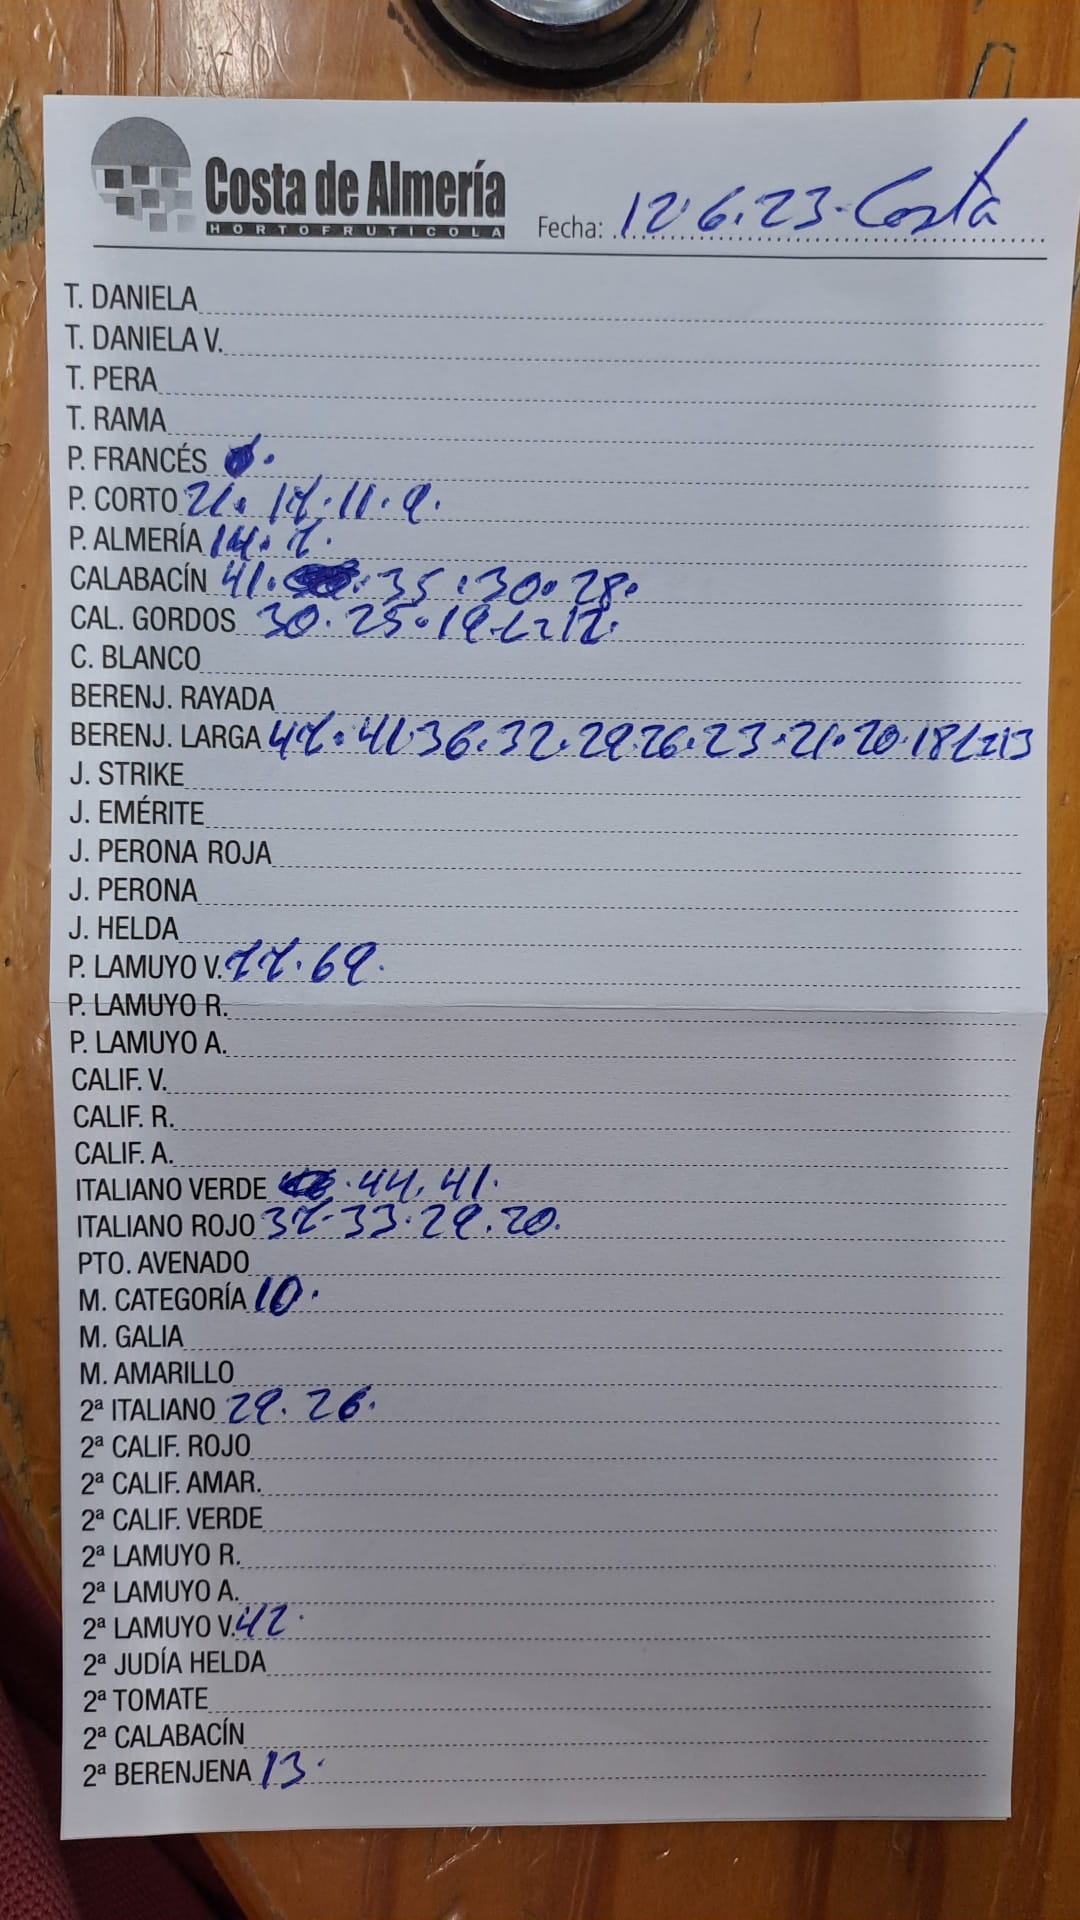 Costa de Almería
HORTOFRUTICOLA
Fecha: 12.6.23. Costa
T. DANIELA
T. DANIELA V.
T. PERA
T. RAMA
P. FRANCÉS
P. CORTO 21. 17. 11. 9.
P. ALMERÍA 14. 7.
CALABACÍN 41. 35. 30. 28.
CAL. GORDOS 30. 25. 19 12.
C. BLANCO
BERENJ. RAYADA
BERENJ. LARGA 47. 41. 36. 32. 29. 26. 23. 21. 20. 18 13
J. STRIKE
J. EMÉRITE
J. PERONA ROJA
J. PERONA
J. HELDA
P. LAMUYO V. 77. 69.
P. LAMUYO R.
P. LAMUYO A.
CALIF. V.
CALIF. R.
CALIF. A.
ITALIANO VERDE 44. 41.
ITALIANO ROJO 37. 33. 29. 20.
PTO. AVENADO
M. CATEGORÍA 10.
M. GALIA
M. AMARILLO
2ª ITALIANO 29. 26.
2ª CALIF. ROJO
2ª CALIF. AMAR.
2ª CALIF. VERDE
2ª LAMUYO R.
2ª LAMUYO A.
2ª LAMUYO V. 42.
2ª JUDÍA HELDA
2ª TOMATE
2ª CALABACÍN
2ª BERENJENA 13.